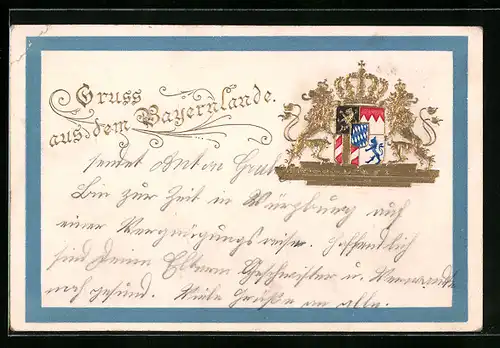 Gruss
aus dem Bayernlande.
sendet Anton
Bin zur Zeit in Würzburg auf
einer Vergnügungsreise. Hoffentlich
sind Deine Eltern Geschwister u. Verwandte
noch gesund. Viele Grüße an alle.